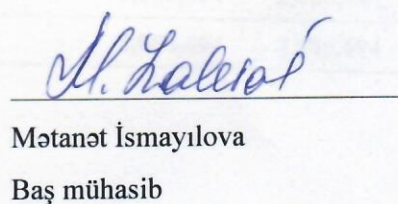 Mətanət İsmayılova
Baş mühasib